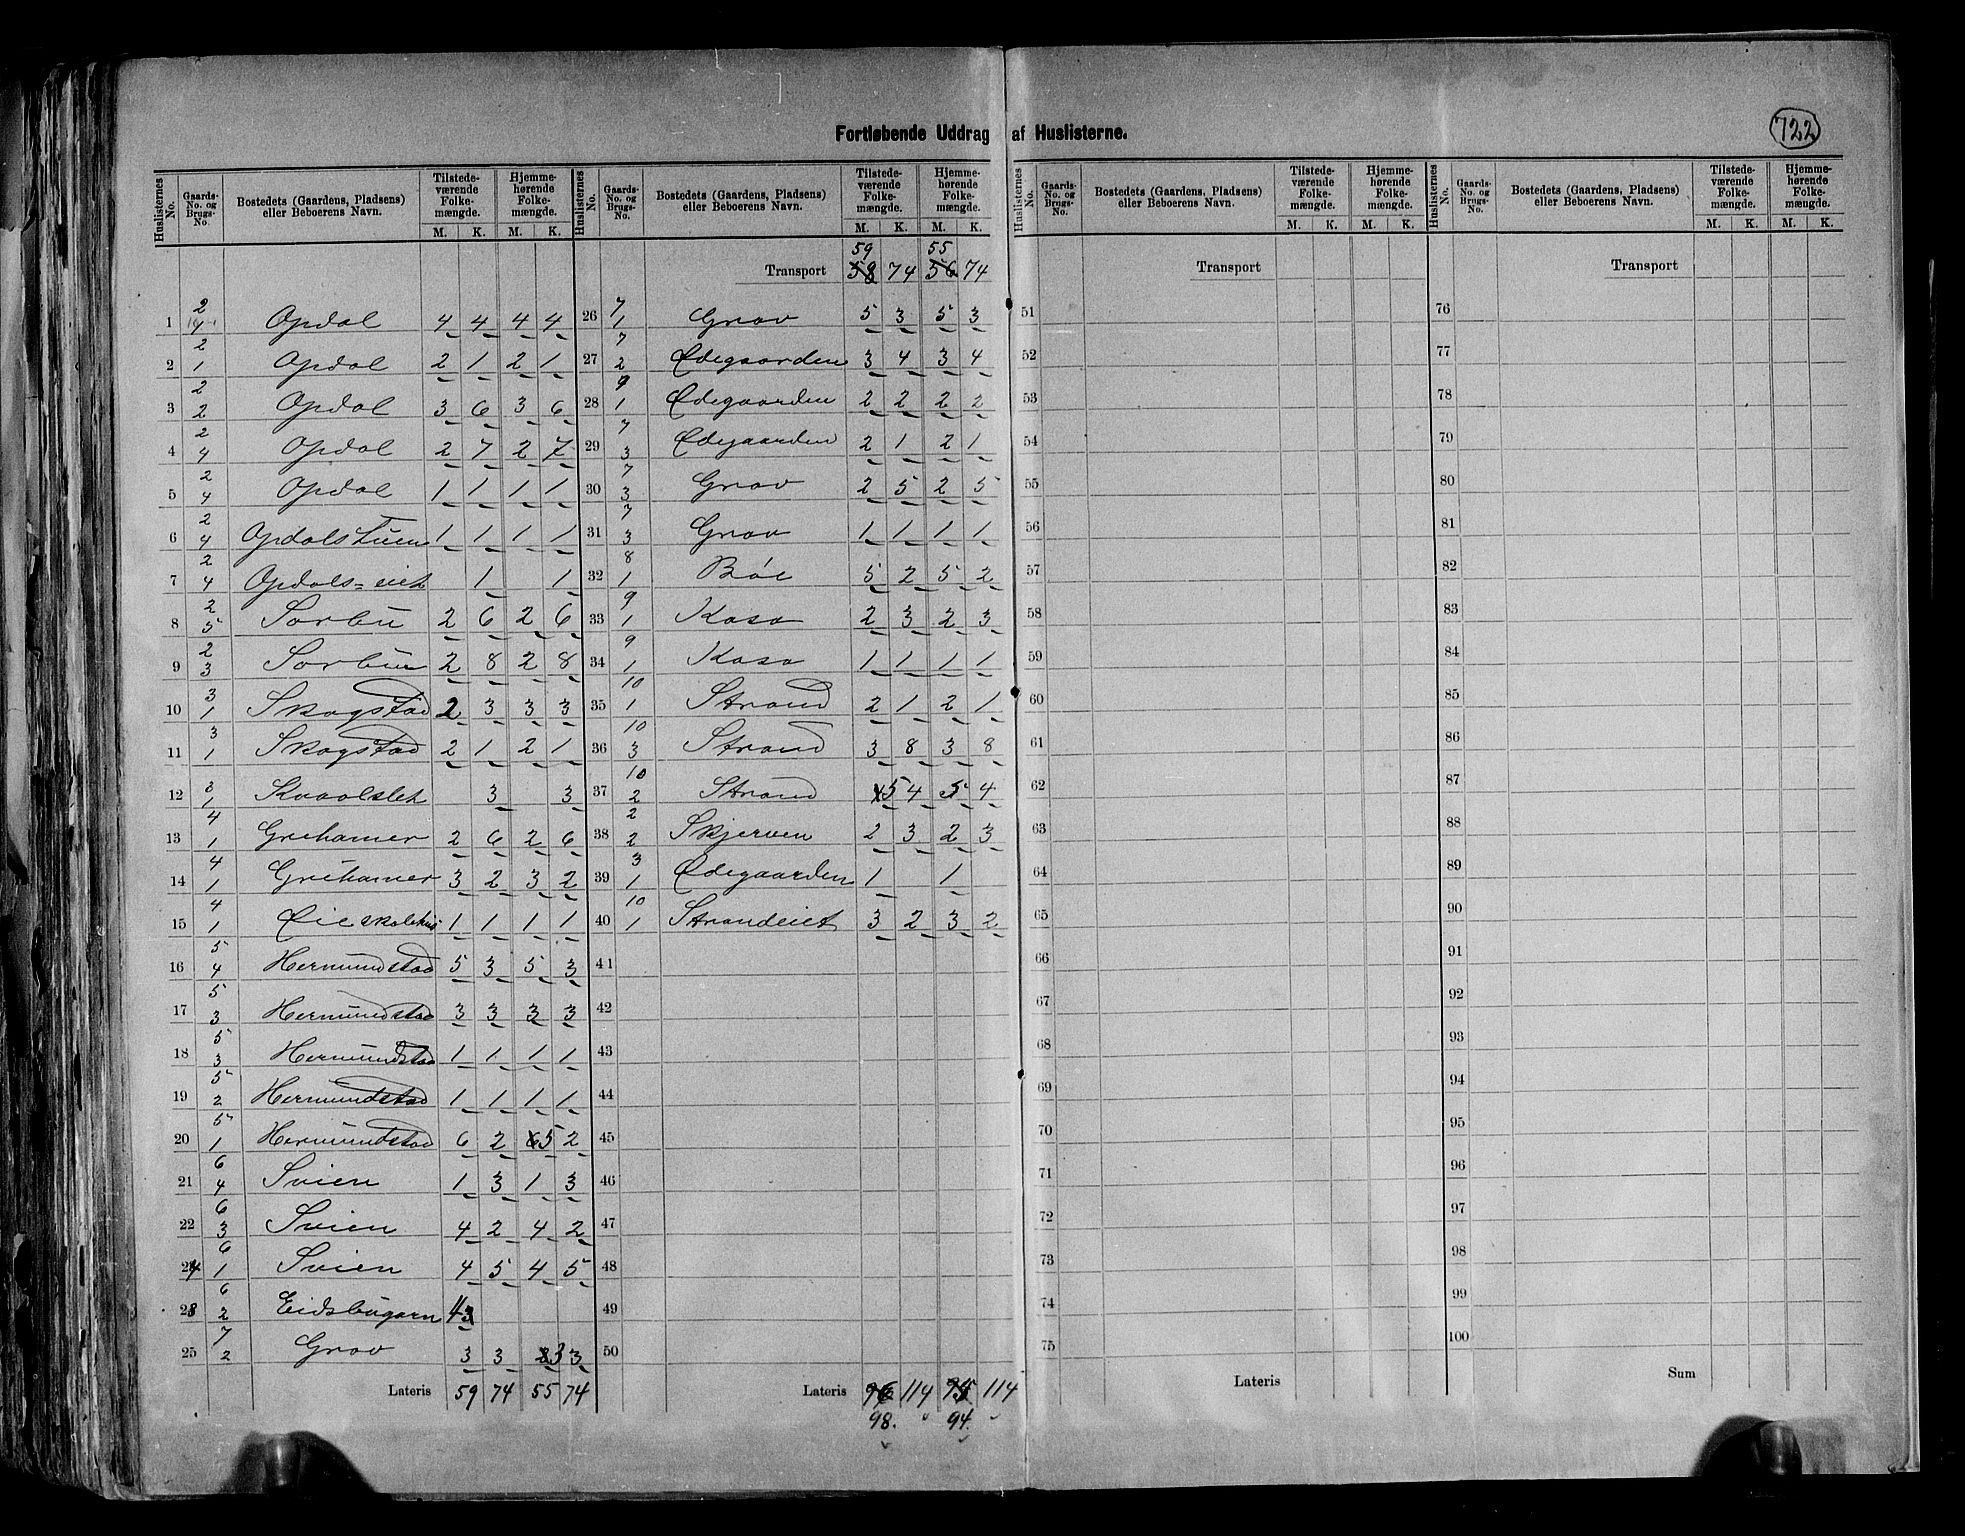 722
Fortløbende Uddrag af Huslisterne.
Huslisternes No. | Gaards-No. og Brugs-No. | Bostedets (Gaardens, Pladsens) eller Beboerens Navn. | Tilstedeværende Folkemængde. M. K. | Hjemmehørende Folkemængde. M. K.
1 | 2/4 | Opdal | 4 | 4 | 4 | 4
2 | 2/1 | Opdal | 2 | 1 | 2 | 1
3 | 2/2 | Opdal | 3 | 6 | 3 | 6
4 | 2/4 | Opdal | 2 | 7 | 2 | 7
5 | 2/4 | Opdal | 1 | 1 | 1 | 1
6 | 2/4 | Opdalstuen | 1 | 1 | 1 | 1
7 | 2/4 | Opdals=eiet | | 1 | | 1
8 | 2/5 | Sorbu | 2 | 6 | 2 | 6
9 | 2/3 | Sorbu | 2 | 8 | 2 | 8
10 | 3/1 | Skogstad | 2 | 3 | 3 | 3
11 | 3/1 | Skogstad | 2 | 1 | 2 | 1
12 | 3/1 | Kvaolslet | | 3 | | 3
13 | 4/1 | Grihamer | 2 | 6 | 2 | 6
14 | 4/1 | Grihamer | 3 | 2 | 3 | 2
15 | 4/1 | Øie skolehus | 1 | 1 | 1 | 1
16 | 5/4 | Hermundstad | 5 | 3 | 5 | 3
17 | 5/3 | Hermundstad | 3 | 3 | 3 | 3
18 | 5/3 | Hermundstad | 1 | 1 | 1 | 1
19 | 5/2 | Hermundstad | 1 | 1 | 1 | 1
20 | 5/1 | Hermundstad | 6 | 2 | 6 5 | 2
21 | 6/4 | Svien | 1 | 3 | 1 | 3
22 | 6/3 | Svien | 4 | 2 | 4 | 2
24 | 6/1 | Svien | 4 | 5 | 4 | 5
23 | 6/2 | Eidsbugarn | 4
25 | 7/2 | Grov | 3 | 3 | 3 | 3
Lateris 59 | 74 | 55 | 74
Huslisternes No. | Gaards-No. og Brugs-No. | Bostedets (Gaardens, Pladsens) eller Beboerens Navn. | Tilstedeværende Folkemængde. M. K. | Hjemmehørende Folkemængde. M. K.
59 55
Transport 58 | 74 | 56 | 74
26 | 7/1 | Grov | 5 | 3 | 5 | 3
27 | 7/2 | Ødegaarden | 3 | 4 | 3 | 4
28 | 9/1 | Ødegaarden | 2 | 2 | 2 | 2
29 | 7/3 | Ødegaarden | 2 | 1 | 2 | 1
30 | 7/3 | Grov | 2 | 5 | 2 | 5
31 | 7/3 | Grov | 1 | 1 | 1 | 1
32 | 8/1 | Bøe | 5 | 2 | 5 | 2
33 | 9/1 | Kasa | 2 | 3 | 2 | 3
34 | 9/1 | Kasa | 1 | 1 | 1 | 1
35 | 10/1 | Strand | 2 | 1 | 2 | 1
36 | 10/3 | Strand | 3 | 8 | 3 | 8
37 | 10/2 | Strand | 5 | 4 | 5 | 4
38 | 2/2 | Skjerven | 2 | 3 | 2 | 3
39 | 3/1 | Ødegaarden | 1 | | 1
40 | 10/1 | Strandeiet | 3 | 2 | 3 | 2
41
42
43
44
45
46
47
48
49
50
Lateris 96 | 114 | 95 | 114
98. 94.
Huslisternes No. | Gaards-No. og Brugs-No. | Bostedets (Gaardens, Pladsens) eller Beboerens Navn. | Tilstedeværende Folkemængde. M. K. | Hjemmehørende Folkemængde. M. K.
Transport
51
52
53
54
55
56
57
58
59
60
61
62
63
64
65
66
67
68
69
70
71
72
73
74
75
Lateris
Huslisternes No. | Gaards-No. og Brugs-No. | Bostedets (Gaardens, Pladsens) eller Beboerens Navn. | Tilstedeværende Folkemængde. M. K. | Hjemmehørende Folkemængde. M. K.
Transport
76
77
78
79
80
81
82
83
84
85
86
87
88
89
90
91
92
93
94
95
96
97
98
99
100
Sum